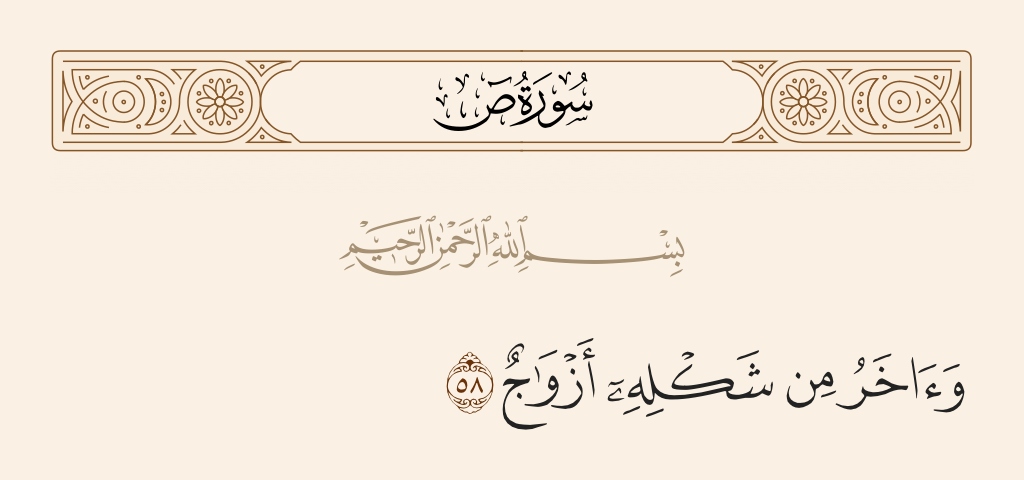 سُورَةُ صٓ
بِسْمِ ٱللَّهِ ٱلرَّحْمَٰنِ ٱلرَّحِيمِ
وَءَاخَرُ مِن شَكْلِهِۦٓ أَزْوَٰجٌ ٥٨